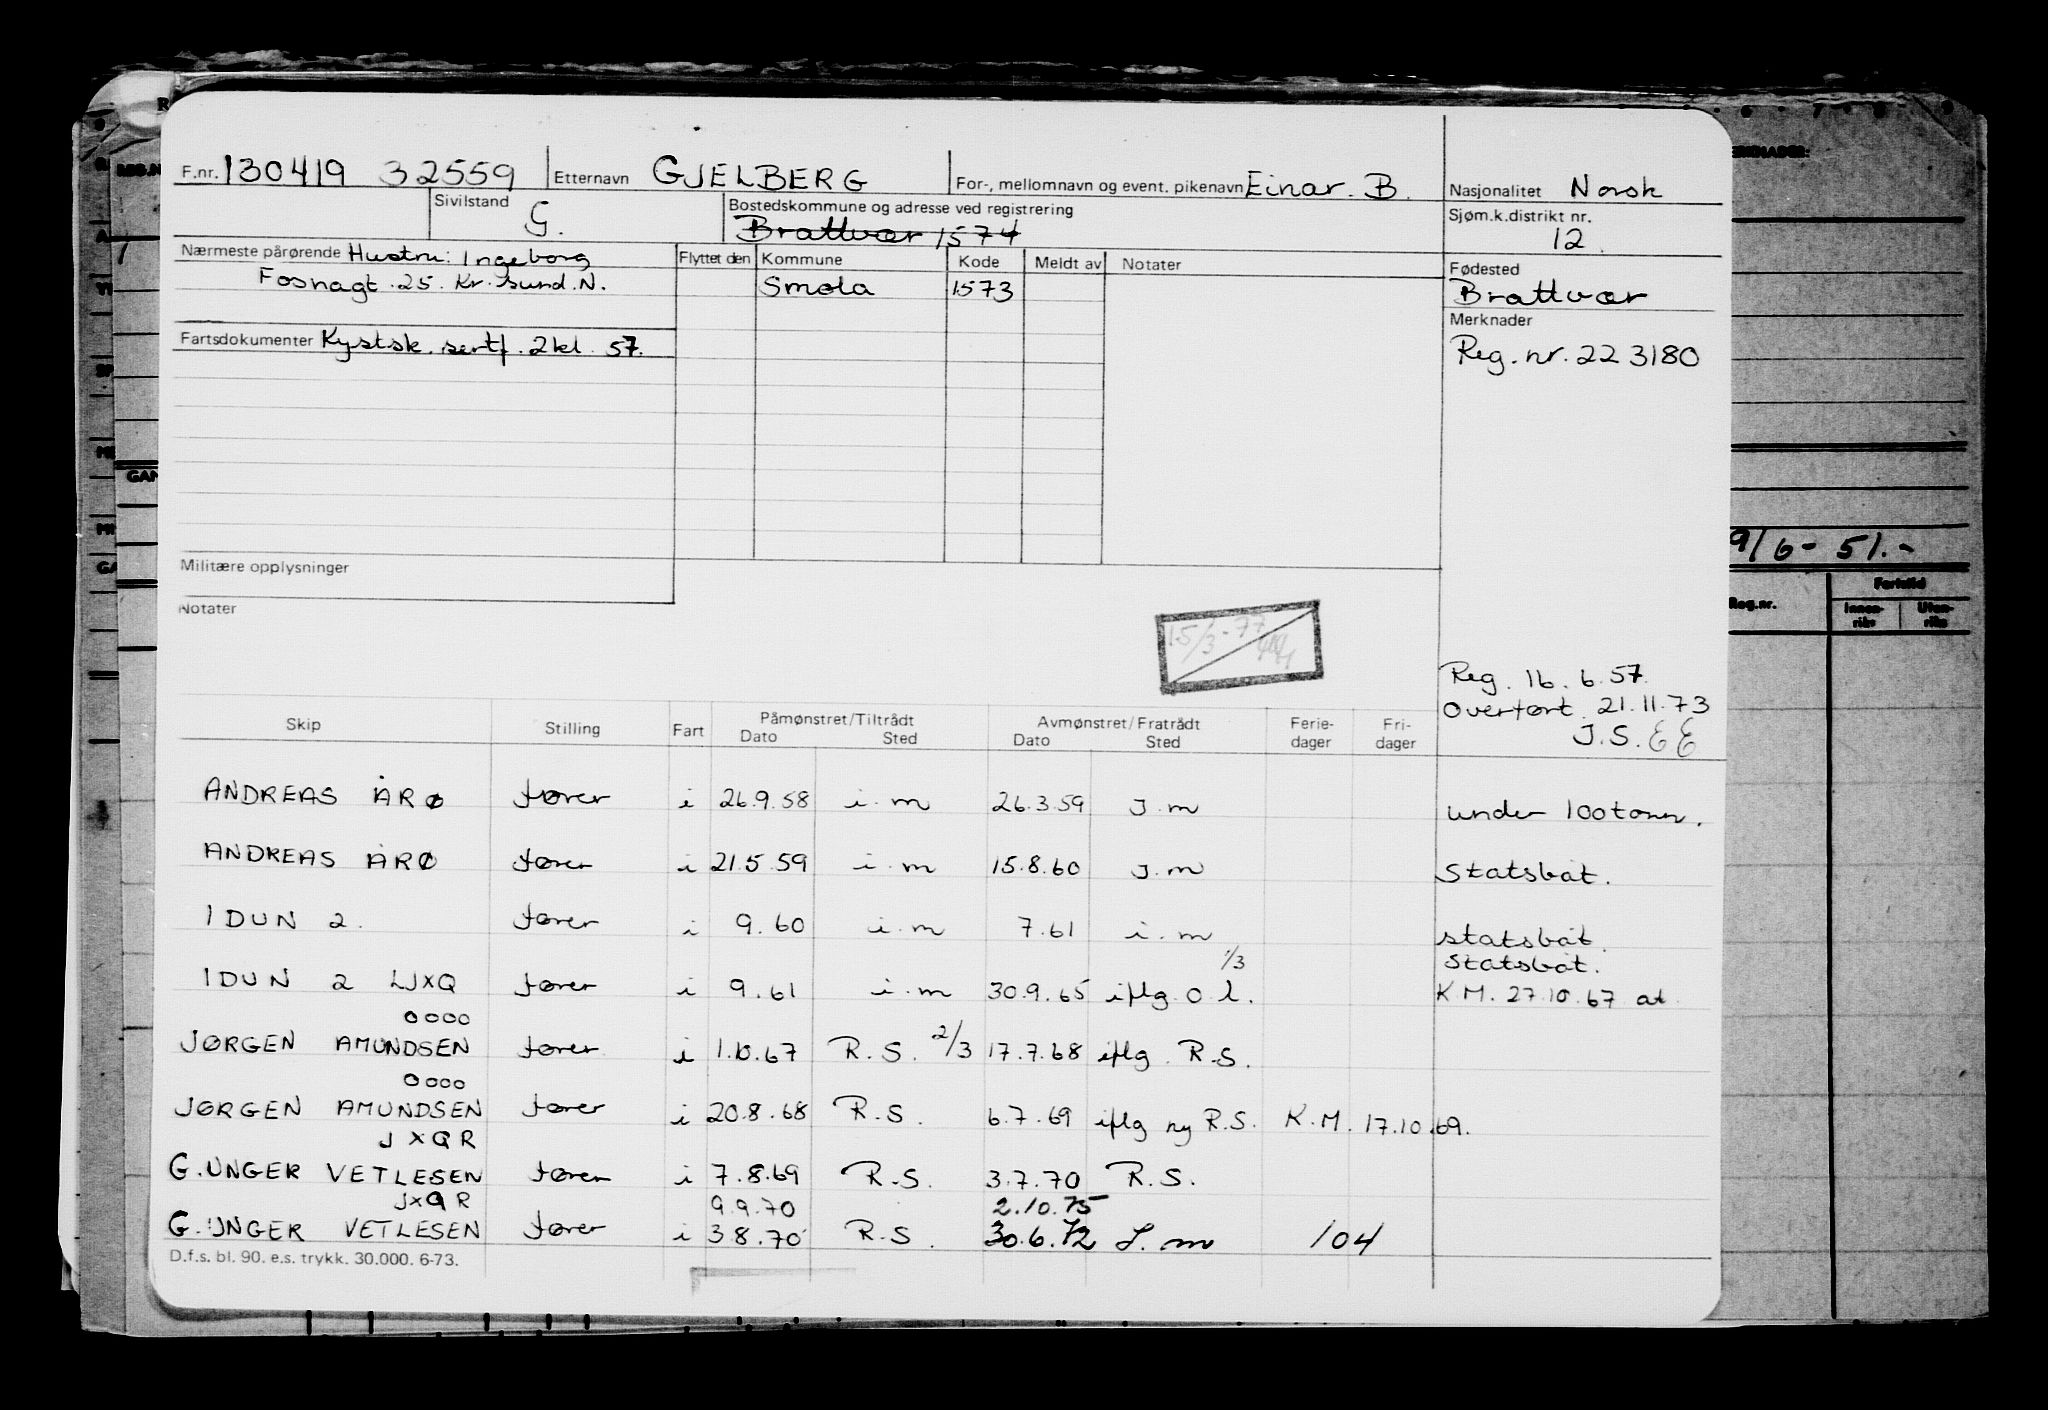 F.nr. 130419 32559 Etternavn GJELBERG For-, mellomnavn og event. pikenavn Einar. B. Nasjonalitet Norsk
Sivilstand G. Bostedskommune og adresse ved registrering Brattvær 1574 Sjøm.k.distrikt nr. 12.
Nærmeste pårørende Hustru: Ingeborg
Fosnagt. 25. Kr. sund. N.
Flyttet den Kommune Kode Meldt av Notater
Smøla 1573
Fødested
Brattvær
Fartsdokumenter Kystsk. sertf. 2kl. 57.
Merknader
Reg. nr. 223180
Militære opplysninger
Notater
15/3-77
Reg. 16. 6. 57.
Overført 21.11.73
J.S.
Skip Stilling Fart Påmønstret/Tiltrådt Dato Sted Avmønstret/Fratrådt Dato Sted Ferie-dager Fri-dager
ANDREAS ÅRØ fører i 26.9.58 i.m 26.3.59 i.m under 100 tonn.
ANDREAS ÅRØ fører i 21.5.59 i.m 15.8.60 i.m Statsbåt.
IDUN 2. fører i 9.60 i.m 7.61 i.m statsbåt.
1/3 Statsbåt.
IDUN 2 LJXQ fører i 9.61 i.m 30.9.65 iflg. O.L. K.M. 27.10.67 at
0000
JØRGEN AMUNDSEN fører i 1.10.67 R.S. 2/3 17.7.68 iflg. R.S.
0000
JØRGEN AMUNDSEN fører i 20.8.68 R.S. 6.7.69 iflg ny R.S. K.M. 17.10.69.
JXQR
G. UNGER VETLESEN fører i 7.8.69 R.S. 3.7.70 R.S.
JXQR 9.9.70 2.10.75
G. UNGER VETLESEN fører i 3.8.70 R.S. 30.6.72 S.m 104
D.f.s. bl. 90. e.s. trykk. 30.000. 6-73.
9/6-51.-
Reg.nr.
Fartstid
Innen-riks
Uten-riks